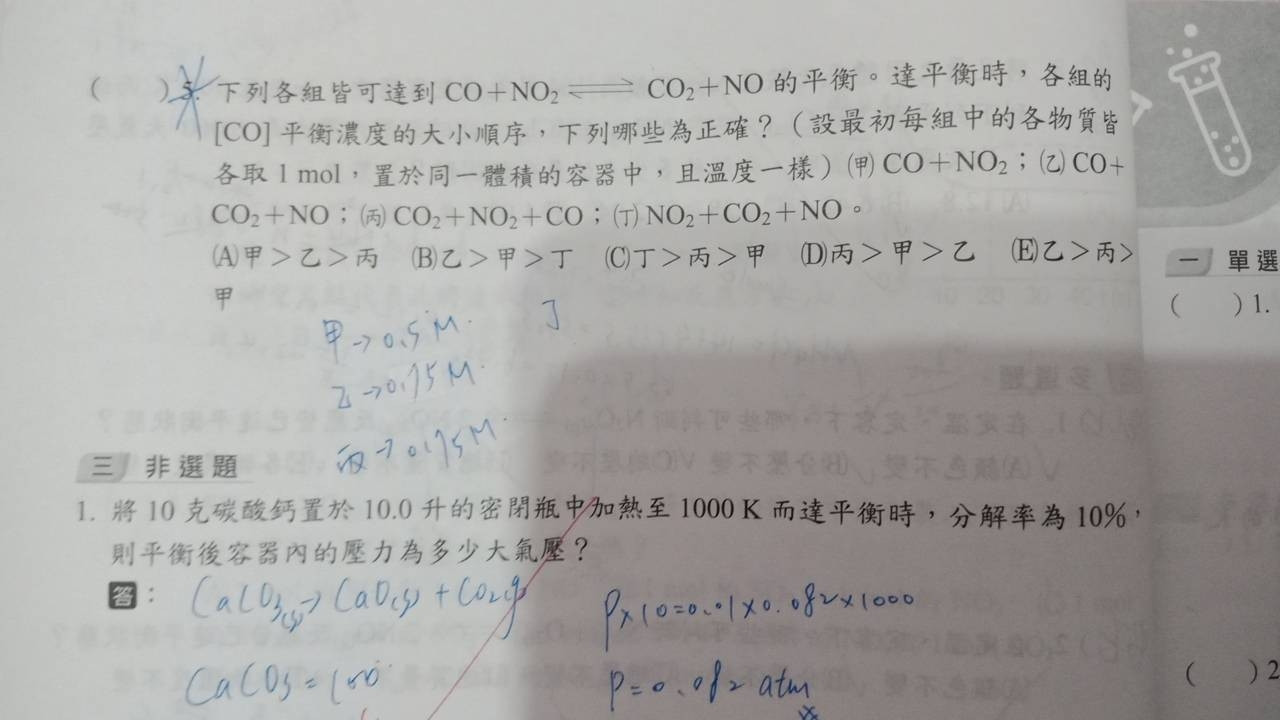 ( )5. 下列各組皆可達到 CO+NO₂ ⇌ CO₂+NO 的平衡。達平衡時，各組的
[CO] 平衡濃度的大小順序，下列哪些為正確？（設最初每組中的各物質皆
各取 1 mol，置於同一體積的容器中，且溫度一樣）㈙ CO+NO₂；㈚ CO+
CO₂+NO；㈛ CO₂+NO₂+CO；㈜ NO₂+CO₂+NO。
(A)甲＞乙＞丙 (B)乙＞甲＞丁 (C)丁＞丙＞甲 (D)丙＞甲＞乙 (E)乙＞丙＞
甲
甲→0.5M. 丁
乙→0.75M.
丙→0.75M.
三 非選題
1. 將 10 克碳酸鈣置於 10.0 升的密閉瓶中加熱至 1000 K 而達平衡時，分解率為 10%，
則平衡後容器內的壓力為多少大氣壓？
答：
CaCO₃(s)→CaO(s)+CO₂(g)
P×10=0.01×0.082×1000
CaCO₃=100
P=0.082 atm
一 單選
( )1.
( )2